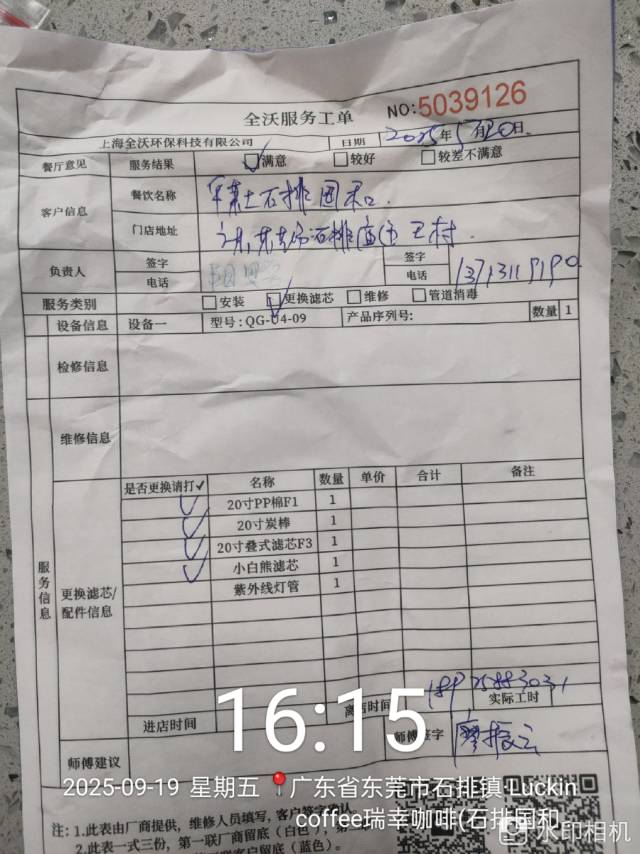 全沃服务工单 NO:5039126
上海全沃环保科技有限公司 日期 2025年 月 日
餐厅意见 服务结果 满意 较好 较差不满意
客户信息 餐饮名称 石排国和
门店地址 石排 王村
负责人 签字 签字
电话 电话
服务类别 安装 更换滤芯 维修 管道消毒
设备信息 设备一 型号:QG-U4-09 产品序列号: 数量 1
检修信息
维修信息
服务信息
更换滤芯/配件信息
是否更换请打✓ 名称 数量 单价 合计 备注
✓ 20寸PP棉F1 1
✓ 20寸炭棒 1
✓ 20寸叠式滤芯F3 1
✓ 小白熊滤芯 1
紫外线灯管 1
进店时间 离店时间 实际工时
师傅建议 师傅签字 廖振云
16:15
2025-09-19 星期五 广东省东莞市石排镇 Luckin
coffee瑞幸咖啡(石排国和
注: 1.此表由厂商提供，维修人员填写，客户签字确认
2.此表一式三份，第一联厂商留底（白色），第二
留底（蓝色）。
水印相机